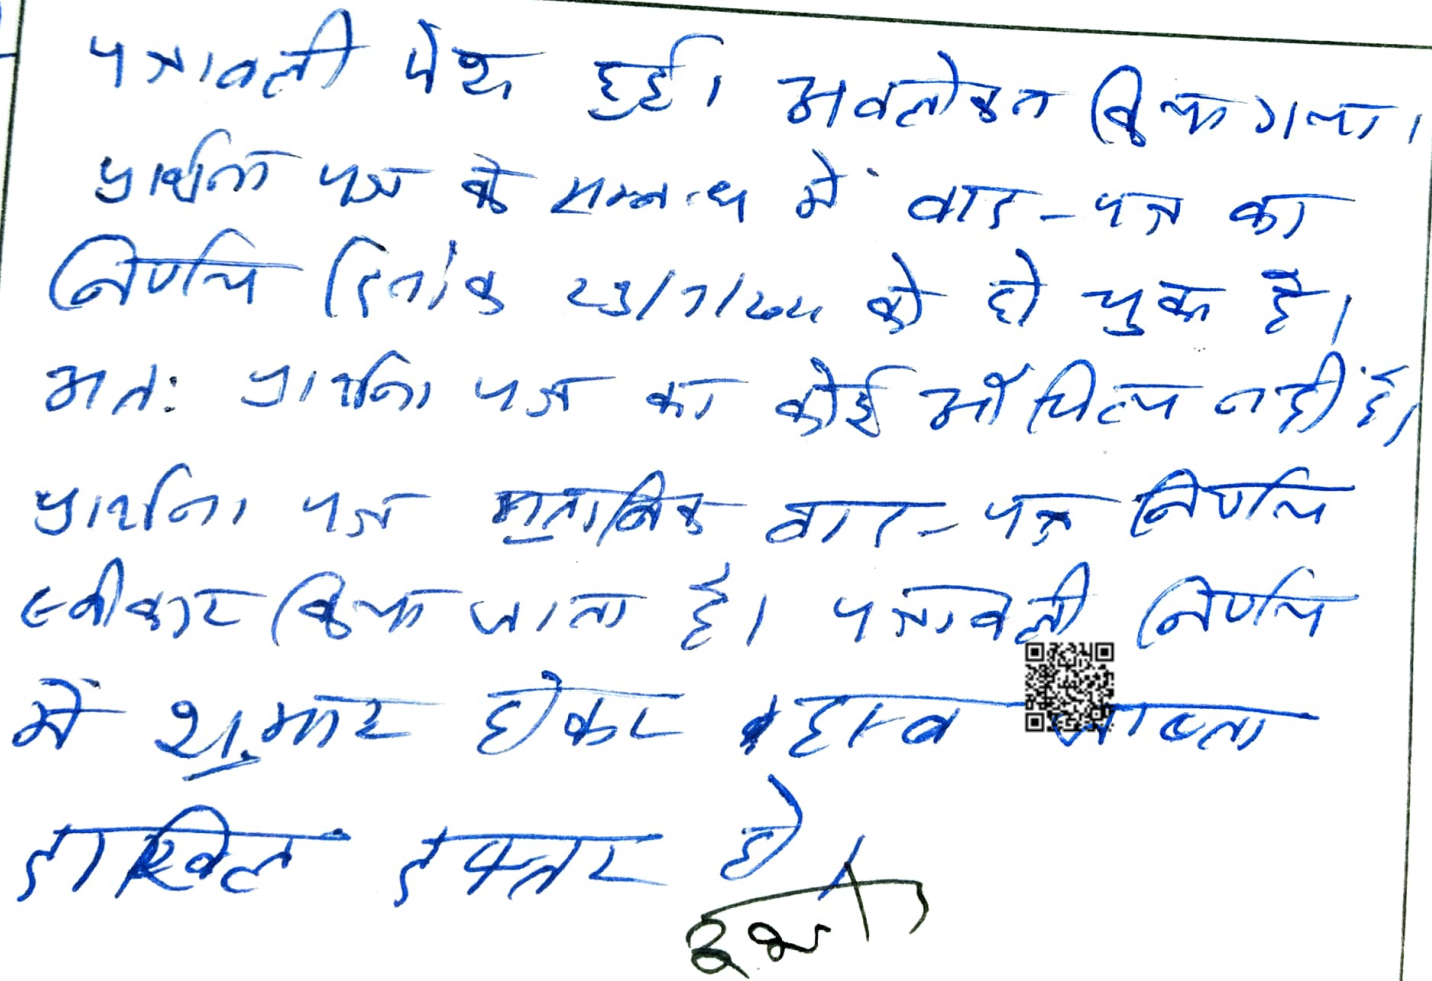 पत्रावली पेश हुई। अवलोकन किया गया।
प्रार्थना पत्र के सम्बन्ध में वाद-पत्र का
निर्णय दिनांक 23/7/2024 को हो चुका है।
अतः प्रार्थना पत्र का कोई औचित्य नहीं है।
प्रार्थना पत्र मुताबिक वाद-पत्र निर्णय
स्वीकार किया जाता है। पत्रावली निर्णय
में शुमार होकर जाब्ता
दाखिल दफ्तर हो।